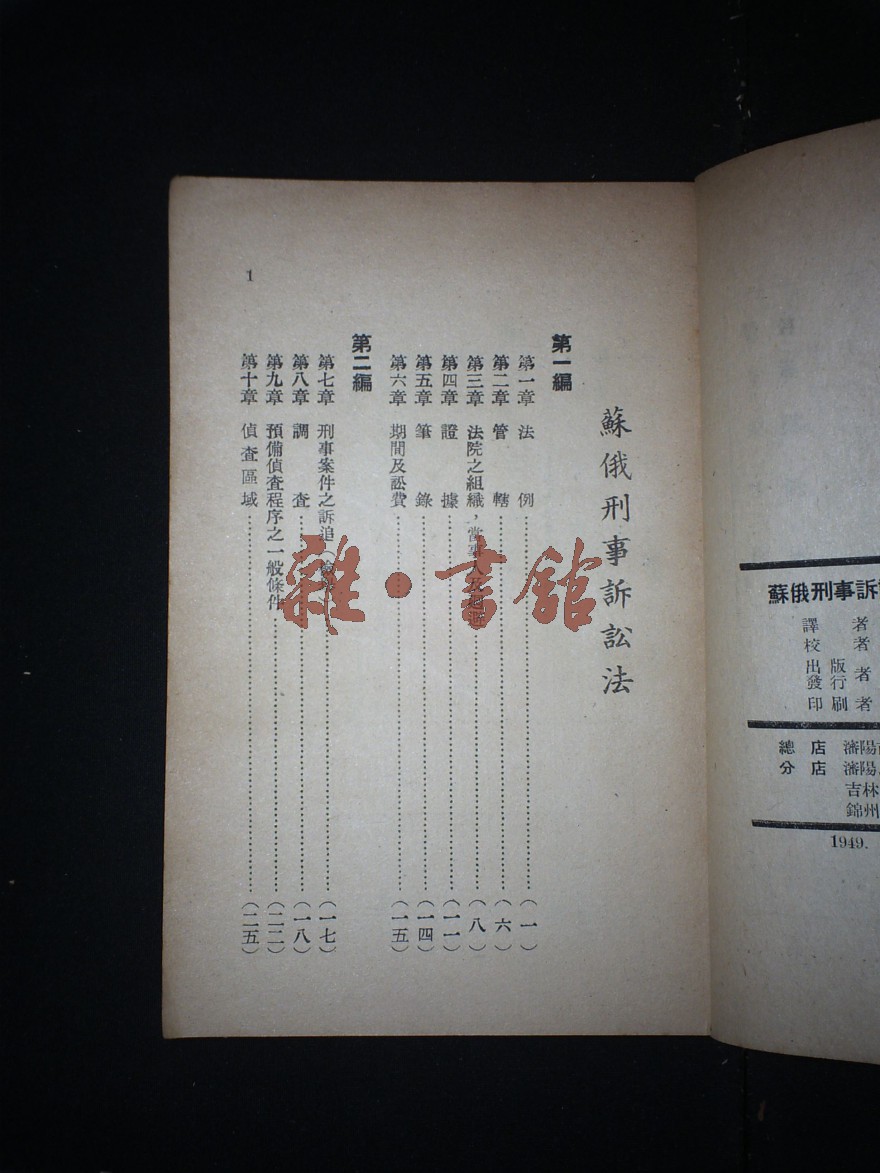 蘇俄刑事訴訟法
第一編
第一章 法例 (一)
第二章 管轄 (六)
第三章 法院之組織，當事人及 (八)
第四章 證據 (一一)
第五章 筆錄 (一四)
第六章 期間及訟費 (一五)
第二編
第七章 刑事案件之訴追 (一七)
第八章 調查 (一八)
第九章 預備偵查程序之一般條件 (二二)
第十章 偵查區域 (二五)
1
雜·書館
蘇俄刑事訴
譯者
校者
出版者
發行
印刷者
總店 瀋陽
分店 瀋陽
吉林
錦州
1949.